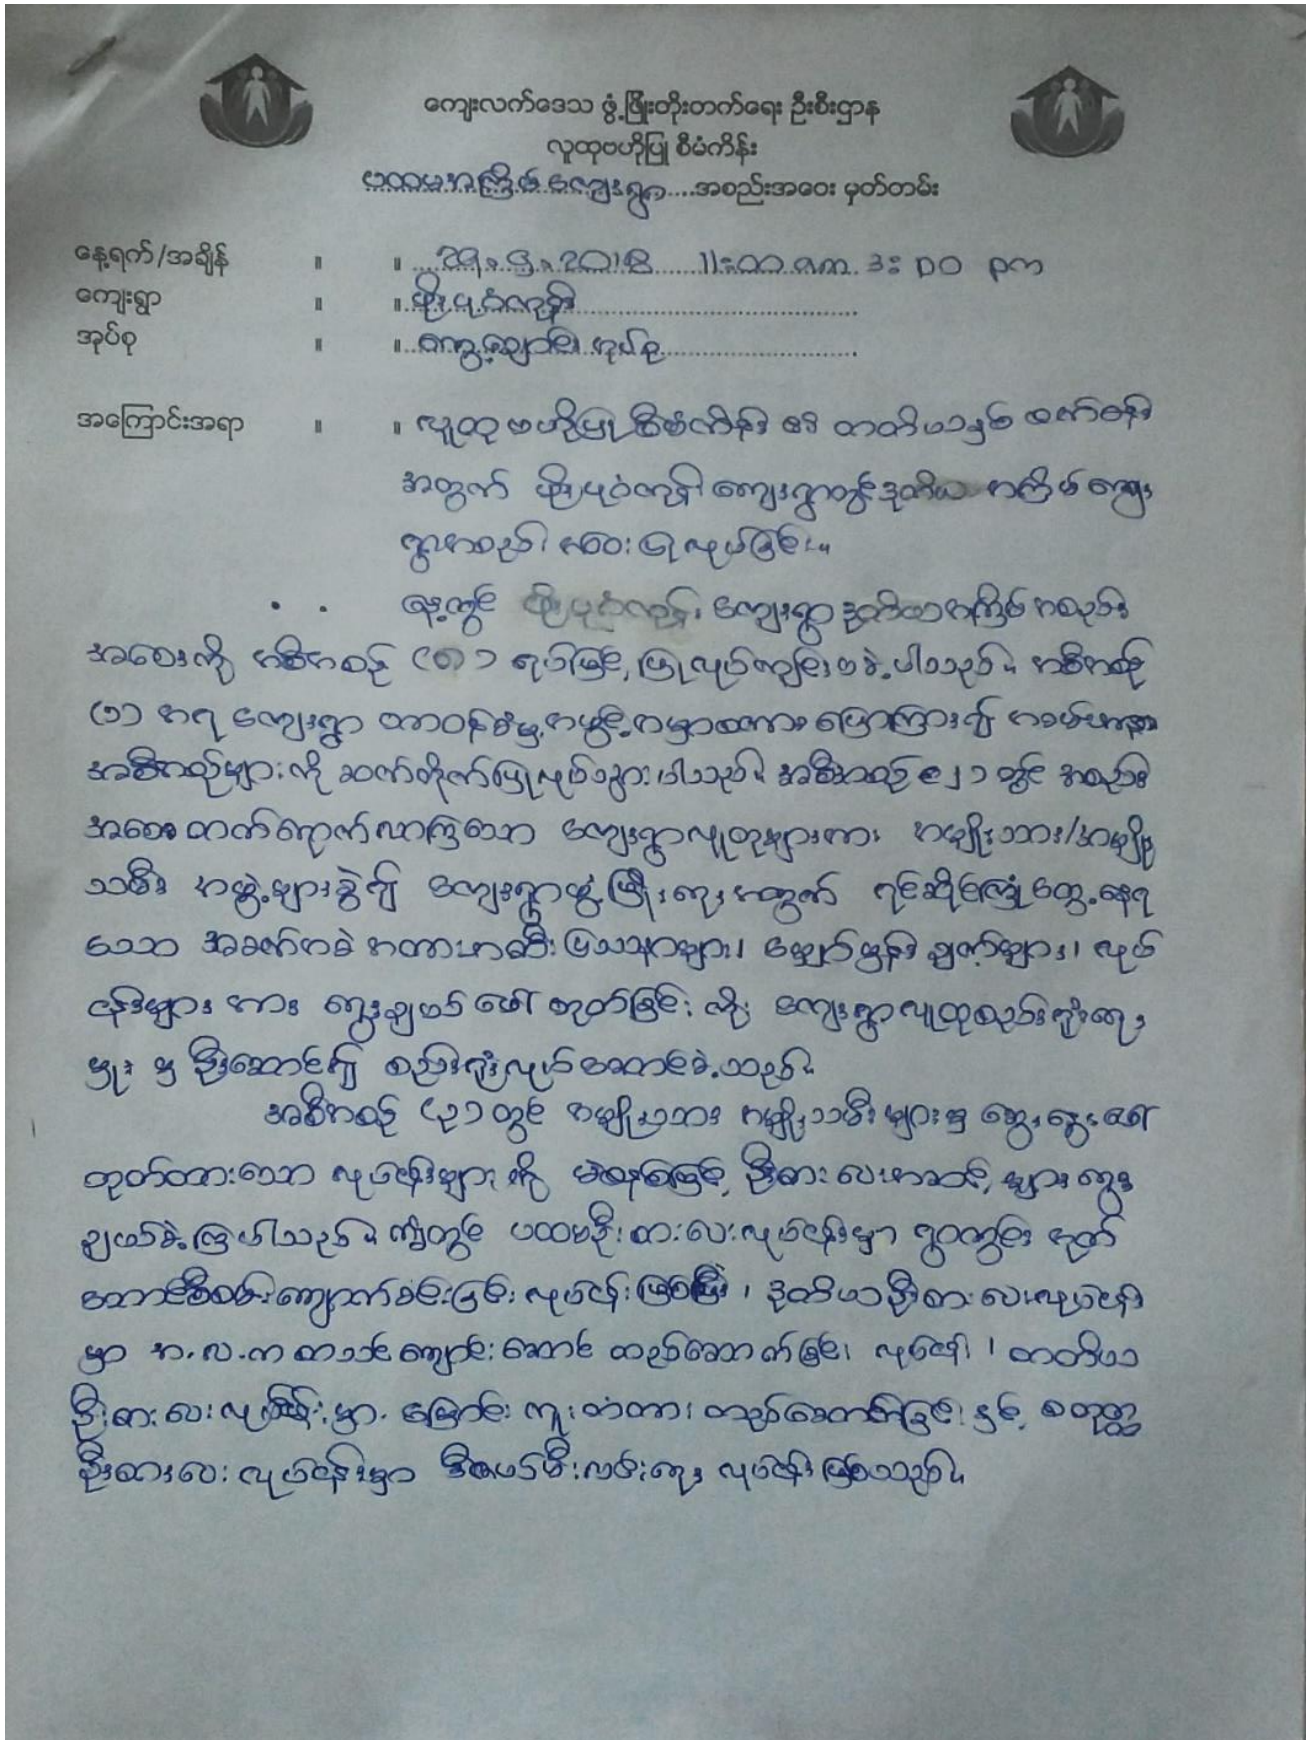 ကျေးလက်ဒေသ ဖွံ့ဖြိုးတိုးတက်ရေး ဦးစီးဌာန
လူထုဗဟိုပြု စီမံကိန်း
ပထမအကြိမ် ကျေးရွာ....အစည်းအဝေး မှတ်တမ်း
နေ့ရက်/အချိန် ။ ။ 29.9.2018 11:00 am 3:00 pm
ကျေးရွာ ။ ။
အုပ်စု ။ ။ အုပ်စု
အကြောင်းအရာ ။ ။ လူထုဗဟိုပြုစီမံကိန်း ၏ တတိယနှစ် စက်ဝန်း
အတွက် ကျေးရွာတွင် ဒုတိယ အကြိမ် ကျေး
ရွာအစည်း အဝေး ပြုလုပ်ခြင်း။
ကျေးရွာ ဒုတိယအကြိမ် အစည်း
အဝေးကို အစီအစဉ် ( ) ရပ်ဖြင့် ပြုလုပ်ကျင်းပခဲ့ပါသည်။ အစီအစဉ်
(၁) အရ ကျေးရွာ တာဝန်ခံမှ အဖွင့်အမှာစကား ပြောကြား၍ အခမ်းအနား
အစီအစဉ်များကို ဆက်လက်ပြုလုပ်သွားပါသည်။ အစီအစဉ် (၂) တွင် အစည်း
အဝေး တက်ရောက်လာကြသော ကျေးရွာလူထုများအား အမျိုးသား/အမျိုး
သမီး အဖွဲ့များခွဲ၍ ကျေးရွာဖွံ့ဖြိုးရေး အတွက် ရင်ဆိုင်ကြုံတွေ့နေရ
သော အခက်အခဲ အတားအဆီး ပြဿနာများ၊ မျှော်မှန်း ချက်များ၊ လုပ်
ငန်းများ အား ရွေးချယ် ဖော် ထုတ်ခြင်း ကို ကျေးရွာလူထုစည်းရုံးရေး
မှူး မှ ဦးဆောင်၍ စည်းရုံးလုပ်ဆောင်ခဲ့သည်။
အစီအစဉ် (၃) တွင် အမျိုးသား အမျိုးသမီး များမှ ဆွေးနွေး ဖော်
ထုတ်ထားသော လုပ်ငန်းများ ကို မဲစနစ်ဖြင့် ဦးစားပေးအဆင့် များ ရွေး
ချယ်ခဲ့ကြပါသည်။ ၎င်းတွင် ပထမဦးစားပေးလုပ်ငန်းမှာ ရွာတွင်း အုတ်
ကျောက်ခင်းခြင်း လုပ်ငန်း ဖြစ်ပြီး၊ ဒုတိယဦးစားပေးလုပ်ငန်း
မှာ အ.လ.က စာသင်ကျောင်းဆောင် တည်ဆောက်ခြင်း လုပ်ငန်း၊ တတိယ
ဦးစားပေးလုပ်ငန်းမှာ မြောင်းကူးတံတား တည်ဆောက်ခြင်း နှင့် စတုတ္ထ
ဦးစားပေး လုပ်ငန်းမှာ မီးလင်းရေး လုပ်ငန်း ဖြစ်သည်။